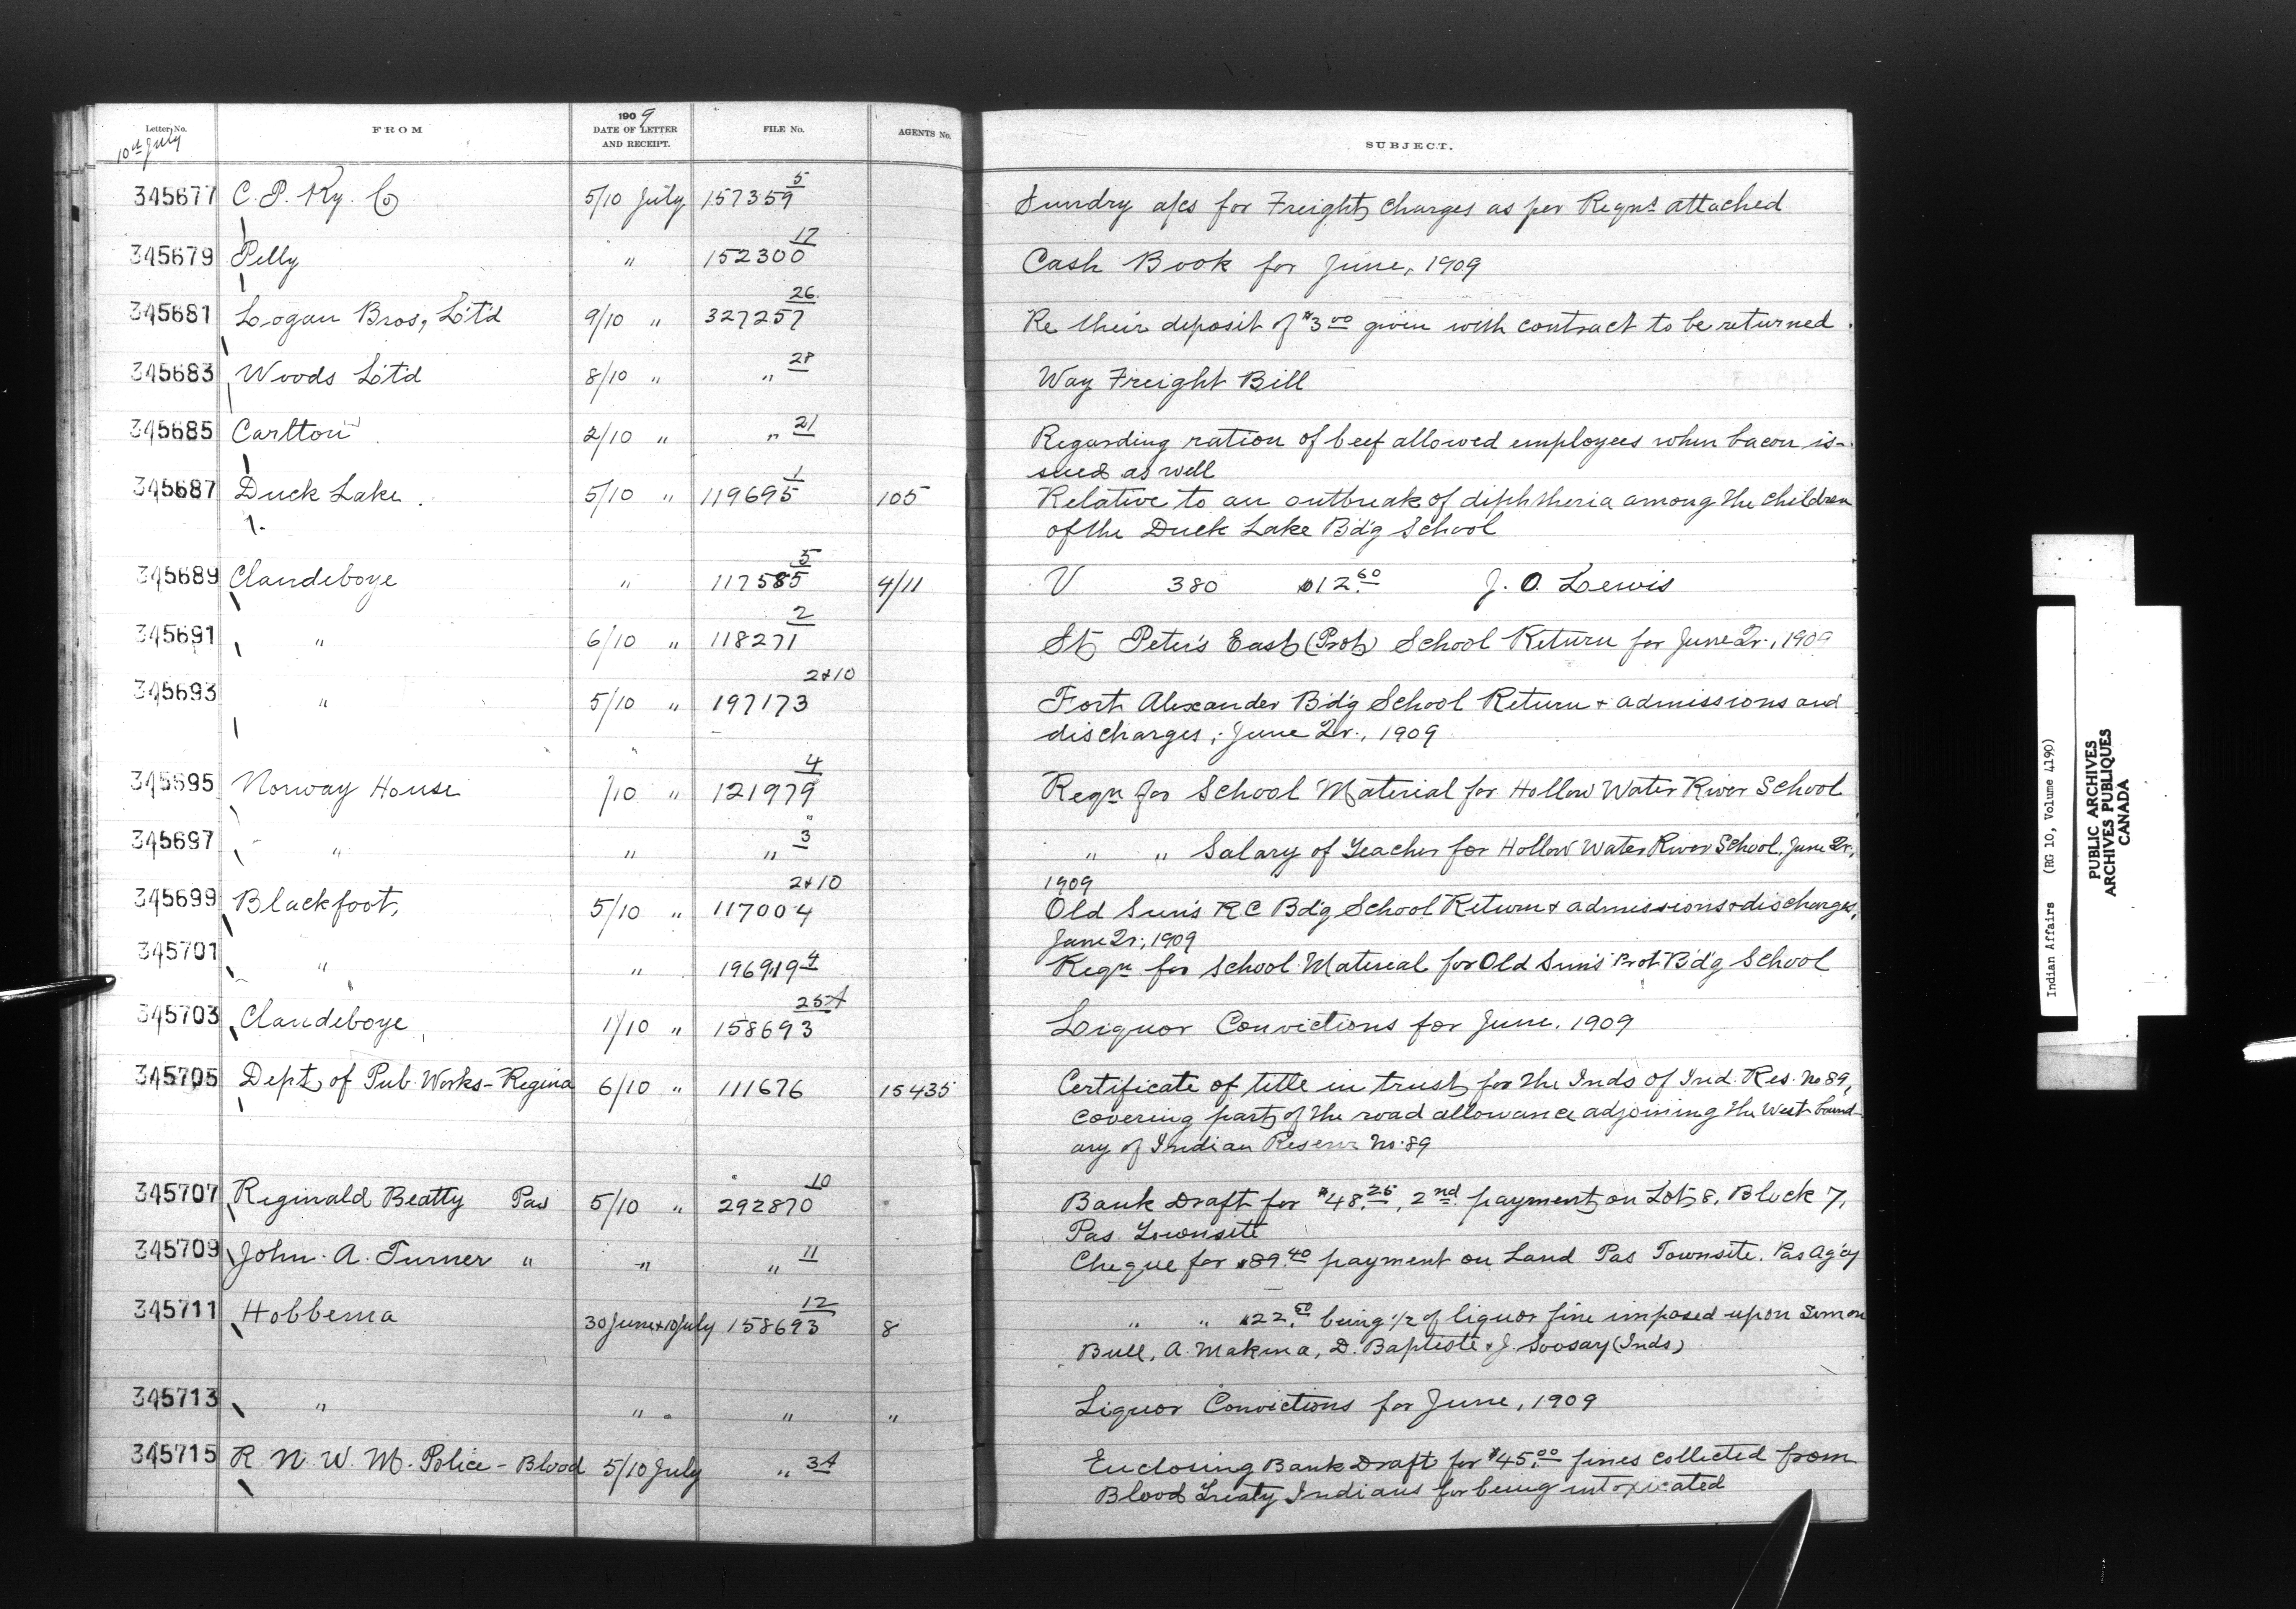 Letter No. FROM 1909 DATE OF LETTER AND RECEIPT. FILE No. AGENTS No. SUBJECT.
10th July
345677 C. P. Ry. Co 5/10 July 157359 5 Sundry a/cs for Freight charges as per Reqns attached
345679 Pelly " 152300 17 Cash Book for June, 1909
345681 Logan Bros, L't'd 9/10 " 327257 26 Re their deposit of $3.00 given with contract to be returned.
345683 Woods L't'd 8/10 " " 28 Way Freight Bill
345685 Carlton 2/10 " " 21 Regarding ration of beef allowed employees when bacon is-
sued as well
345687 Duck Lake 5/10 " 119695 1 105 Relative to an outbreak of diphtheria among the children
of the Duck Lake B'd'g School
345689 Clandeboye " 117585 5 4/11 V 380 $12.60 J. O. Lewis
345691 " 6/10 " 118271 2 St Peter's East (Prot) School Return for June Qr., 1909
345693 " 5/10 " 197173 2&10 Fort Alexander B'd'g School Return & admissions and
discharges, June Qr., 1909
345695 Norway House /10 " 121979 4 Reqn for School Material for Hollow Water River School
345697 " " " 3 " " Salary of Teacher for Hollow Water River School, June Qr,
1909
345699 Blackfoot, 5/10 " 117004 2&10 Old Sun's R C Bd'g School Return & admissions & discharges,
June Qr, 1909
345701 " " 196919 4 Reqn for School Material for Old Sun's Prot B'd'g School
345703 Clandeboye 1/10 " 158693 25A Liquor Convictions for June, 1909
345705 Dept of Pub. Works - Regina 6/10 " 111676 15435 Certificate of title in trust for the Inds of Ind. Res. No 89,
covering part of the road allowance adjoining the West bound-
ary of Indian Reserve No. 89
345707 Reginald Beatty Pas 5/10 " 292870 10 Bank Draft for $48.25, 2nd payment on Lot 8, Block 7,
Pas Townsite
345709 John. A. Turner " " " 11 Cheque for $89.40 payment on Land Pas Townsite. Pas Ag'cy
345711 Hobbema 30 June & 10 July 158693 12 8 " " $22.50 being 1/2 of liquor fine imposed upon Simon
Bull, A. Makina, D. Baptiste & J. Soosay (Inds)
345713 " " " " Liquor Convictions for June, 1909
345715 R N. W. M. Police - Blood 5/10 July " 3A Enclosing Bank Draft for $45.00 fines collected from
Blood Treaty Indians for being intoxicated
Indian Affairs (RG 10, Volume 4190)
PUBLIC ARCHIVES
ARCHIVES PUBLIQUES
CANADA